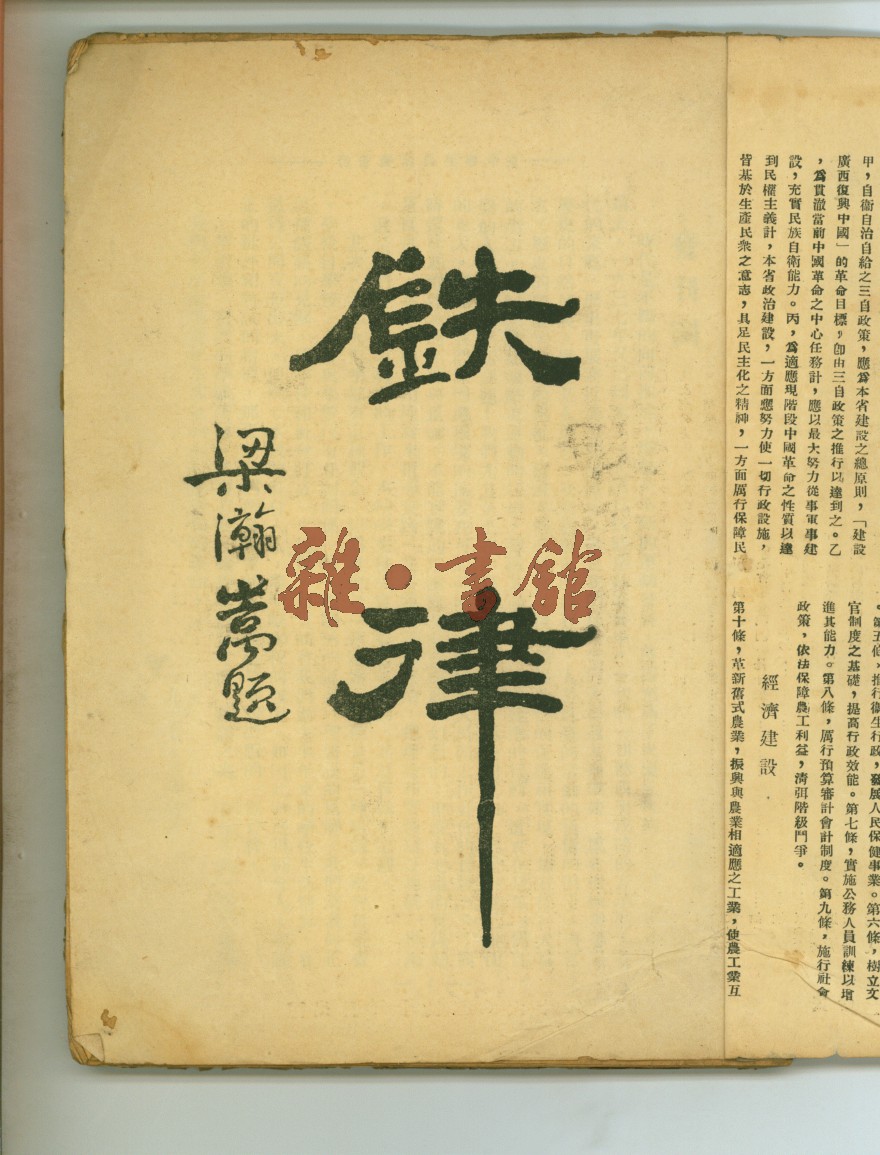 甲，自衞自治自給之三自政策，應爲本省建設之總原則，「建設
廣西復興中國」的革命目標，卽由三自政策之推行以達到之。乙
，爲貫澈當前中國革命之中心任務計，應以最大努力從事軍事建
設，充實民族自衞能力。丙，爲適應現階段中國革命之性質以達
到民權主義計，本省政治建設，一方面應努力使一切行政設施，
皆基於生產民衆之意志，具足民主化之精神，一方面厲行保障民
。第五條，推行衞生行政，發展人民保健事業。第六條，樹立文
官制度之基礎，提高行政效能。第七條，實施公務人員訓練以增
進其能力。第八條，厲行預算審計會計制度。第九條，施行社會
政策，依法保障農工利益，消弭階級鬥爭。
經濟建設
第十條，革新舊式農業，振興與農業相適應之工業，使農工業互
鉄律
梁瀚嵩題
雜·書館